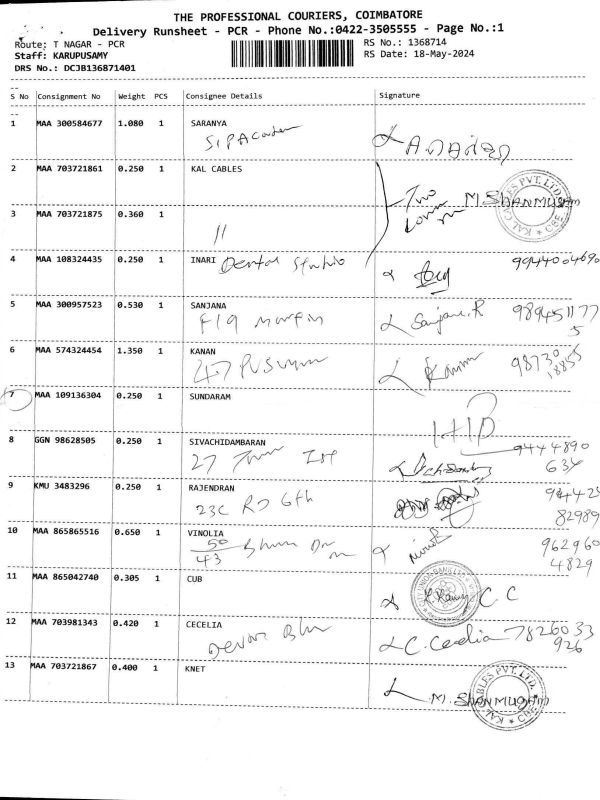 THE PROFESSIONAL COURIERS, COIMBATORE
Delivery Runsheet - PCR - Phone No.:0422-3505555 - Page No.:1
Route: T NAGAR - PCR
RS No.: 1368714
Staff: KARUPUSAMY
RS Date: 18-May-2024
DRS No.: DCJB136871401
S No Consignment No Weight PCS Consignee Details Signature
1 MAA 300584677 1.080 1 SARANYA
2 MAA 703721861 0.250 1 KAL CABLES
Two M.SHANMUGAM
KAL CABLES PVT. LTD. CBE
3 MAA 703721875 0.360 1
11
4 MAA 108324435 0.250 1 INARI Dental Studio
5 MAA 300957523 0.530 1 SANJANA
Sanjana.R 989451177
5
6 MAA 574324454 1.350 1 KANAN
47
98730
18855
7 MAA 109136304 0.250 1 SUNDARAM
8 GGN 98628505 0.250 1 SIVACHIDAMBARAN
27
9444890
634
9 KMU 3483296 0.250 1 RAJENDRAN
23C
94425
82989
10 MAA 865865516 0.650 1 VINOLIA
50
43
962960
4829
11 MAA 865042740 0.305 1 CUB
C C
12 MAA 703981343 0.420 1 CECELIA
C. Cecelia 7826033
926
13 MAA 703721867 0.400 1 KNET
M. SHANMUGAM
CABLES PVT. LTD. CBE